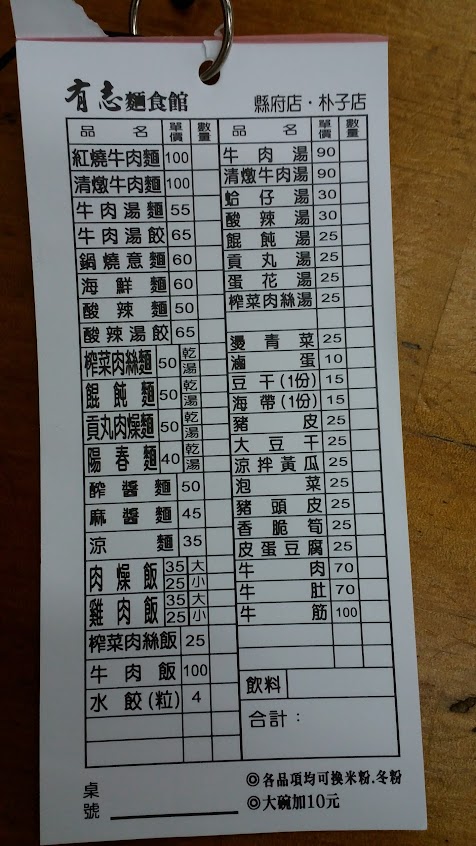 有志麵食館 縣府店・朴子店
品名 單價 數量
紅燒牛肉麵 100
清燉牛肉麵 100
牛肉湯麵 55
牛肉湯餃 65
鍋燒意麵 60
海鮮麵 60
酸辣麵 50
酸辣湯餃 65
榨菜肉絲麵 50 乾 湯
餛飩麵 50 乾 湯
貢丸肉燥麵 50 乾 湯
陽春麵 40 乾 湯
醡醬麵 50
麻醬麵 45
涼麵 35
肉燥飯 35 大 25 小
雞肉飯 35 大 25 小
榨菜肉絲飯 25
牛肉飯 100
水餃(粒) 4
品名 單價 數量
牛肉湯 90
清燉牛肉湯 90
蛤仔湯 30
酸辣湯 30
餛飩湯 25
貢丸湯 25
蛋花湯 25
榨菜肉絲湯 25
燙青菜 25
滷蛋 10
豆干(1份) 15
海帶(1份) 15
豬皮 25
大豆干 25
涼拌黃瓜 25
泡菜 25
豬頭皮 25
香脆筍 25
皮蛋豆腐 25
牛肉 70
牛肚 70
牛筋 100
飲料
合計：
桌號
◎各品項均可換米粉.冬粉
◎大碗加10元